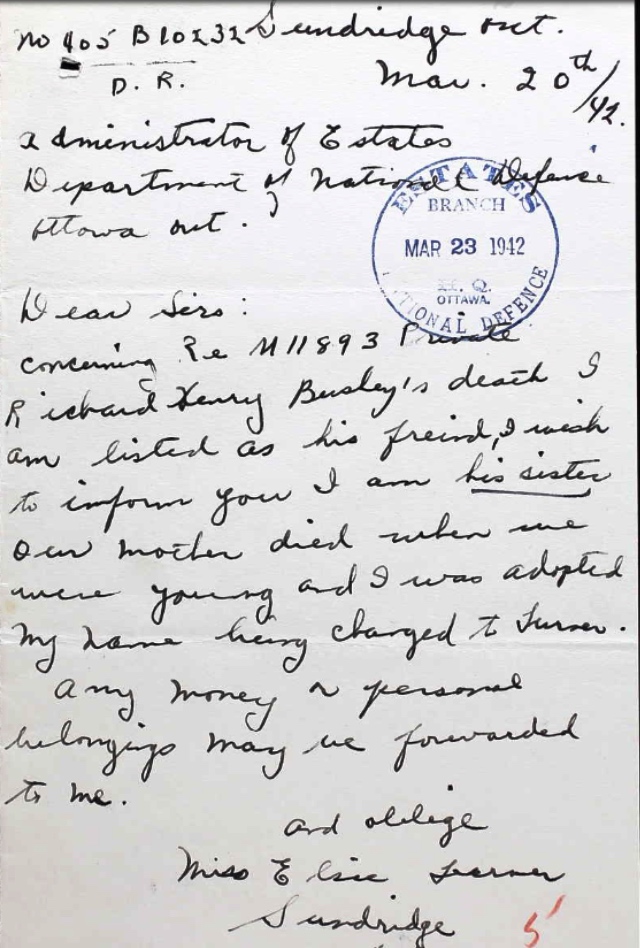 No 405 B10232 Sundridge Ont.
D. R. Mar. 20th/42.
Administrator of Estates
Department of National Defense
Ottowa Ont.
ESTATES
BRANCH
MAR 23 1942
H. Q.
OTTAWA.
NATIONAL DEFENCE
Dear Sirs:
concerning Re M11893 Private
Richard Henry Busley's death I
am listed as his freind, I wish
to inform you I am his sister
Our mother died when we
were young and I was adopted
my name being changed to Turner.
Any money or personal
belongings may be forwarded
to me.
and oblige
Miss Elsie Turner
Sundridge
5